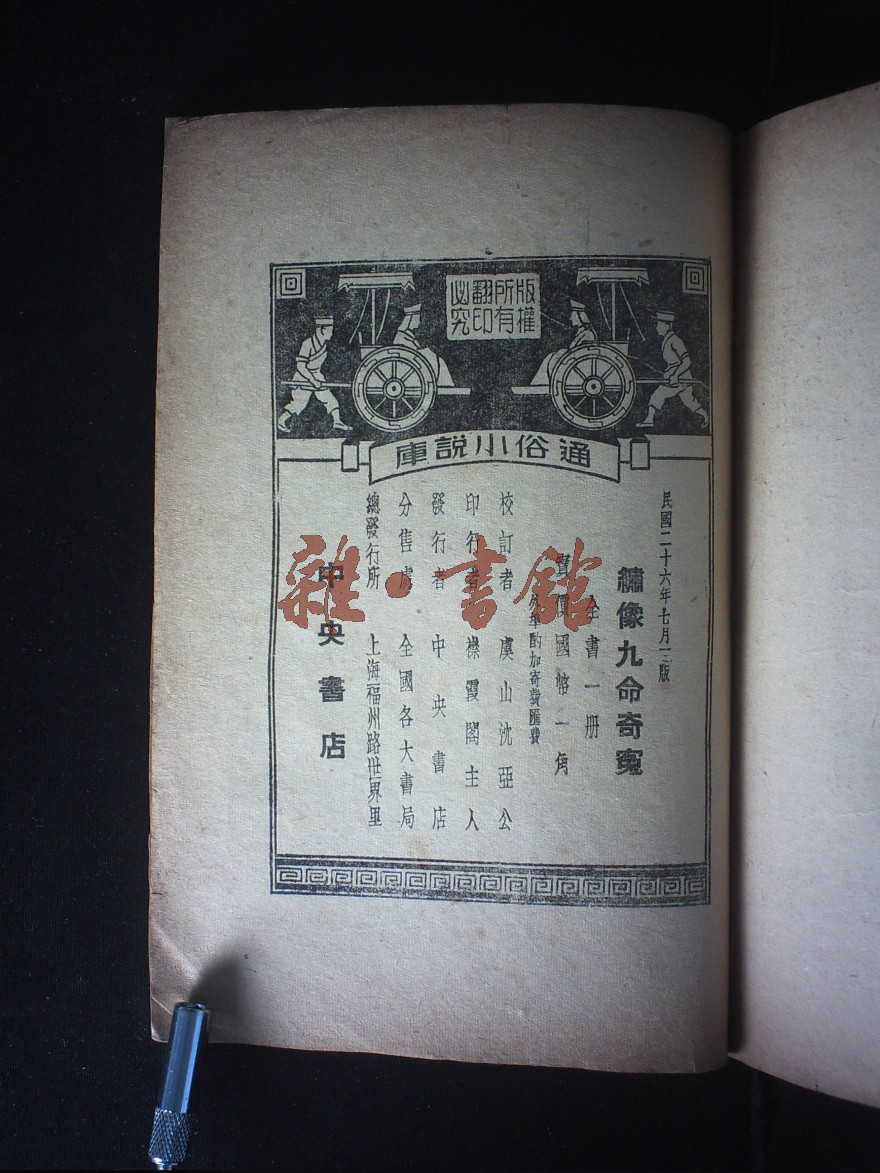 版權
所有
翻印
必究
通俗小說庫
民國二十六年七月版
繡像九命奇寃
全書一册
實價國幣一角
外埠酌加寄費匯費
校訂者 虞山沈亞公
印行者 襟霞閣主人
發行者 中央書店
分售處 全國各大書局
總發行所 上海福州路世界里
中央書店
雜·書館